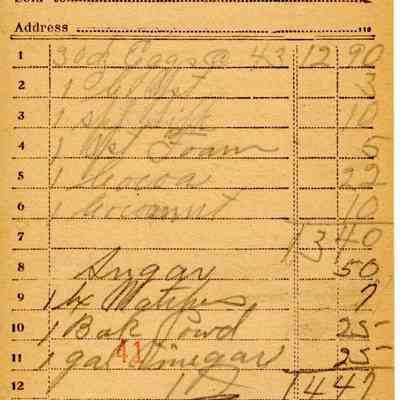 Address
1 30 d Eggs @ 43 12 90
2 1 3
3 1 10
4 1 Foam 5
5 1 Cocoa 22
6 1 Cocoanut 10
7 13 40
8 Sugar 50
9 1 bx Matches 7
10 1 Bak Powd 25
11 1 gal Vinegar 25
41
12 14 47